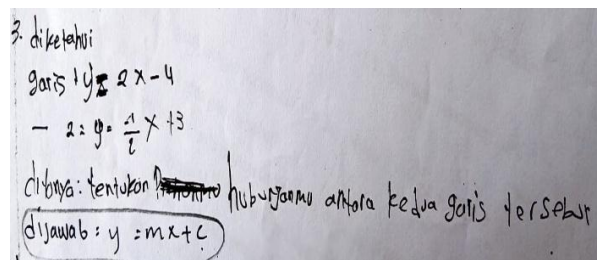 3. diketahui
garis 1 y = 2x - 4
- 2 = y = -1/2 x + 3
ditanya : tentukan hubungannu antara kedua garis tersebut
dijawab : y = mx + c